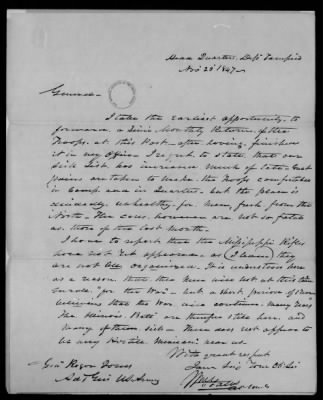 Head Quarters Dept Tampico
Nov 20 1847
General
I take the earliest opportunity to
forward a Semi Monthly Return of the
Troops at this Post after having finished
it in my Office I regret to state, that our
Sick List has increased much of late. Great
pains are taken to make the Troops comfortable
in Camp and in Quarters, but the place is
decidedly unhealthy for men fresh from the
North. The cases however are not so fatal
as those of the last month.
I have to report that the Mississippi Rifles
have not yet appeared as (I learn) they
are not all organized. It is understood here
as a reason that the men will not at this time
enrole "for the War" but a short period of
believing that the War will continue many years
The Illinois Batt are therefore still here and
many of them sick. There does not appear to
be any Hostile Mexicans near us
With great respect
Your Sir Your Ob Sv
Genl Roger Jones
Adt Genl US Army